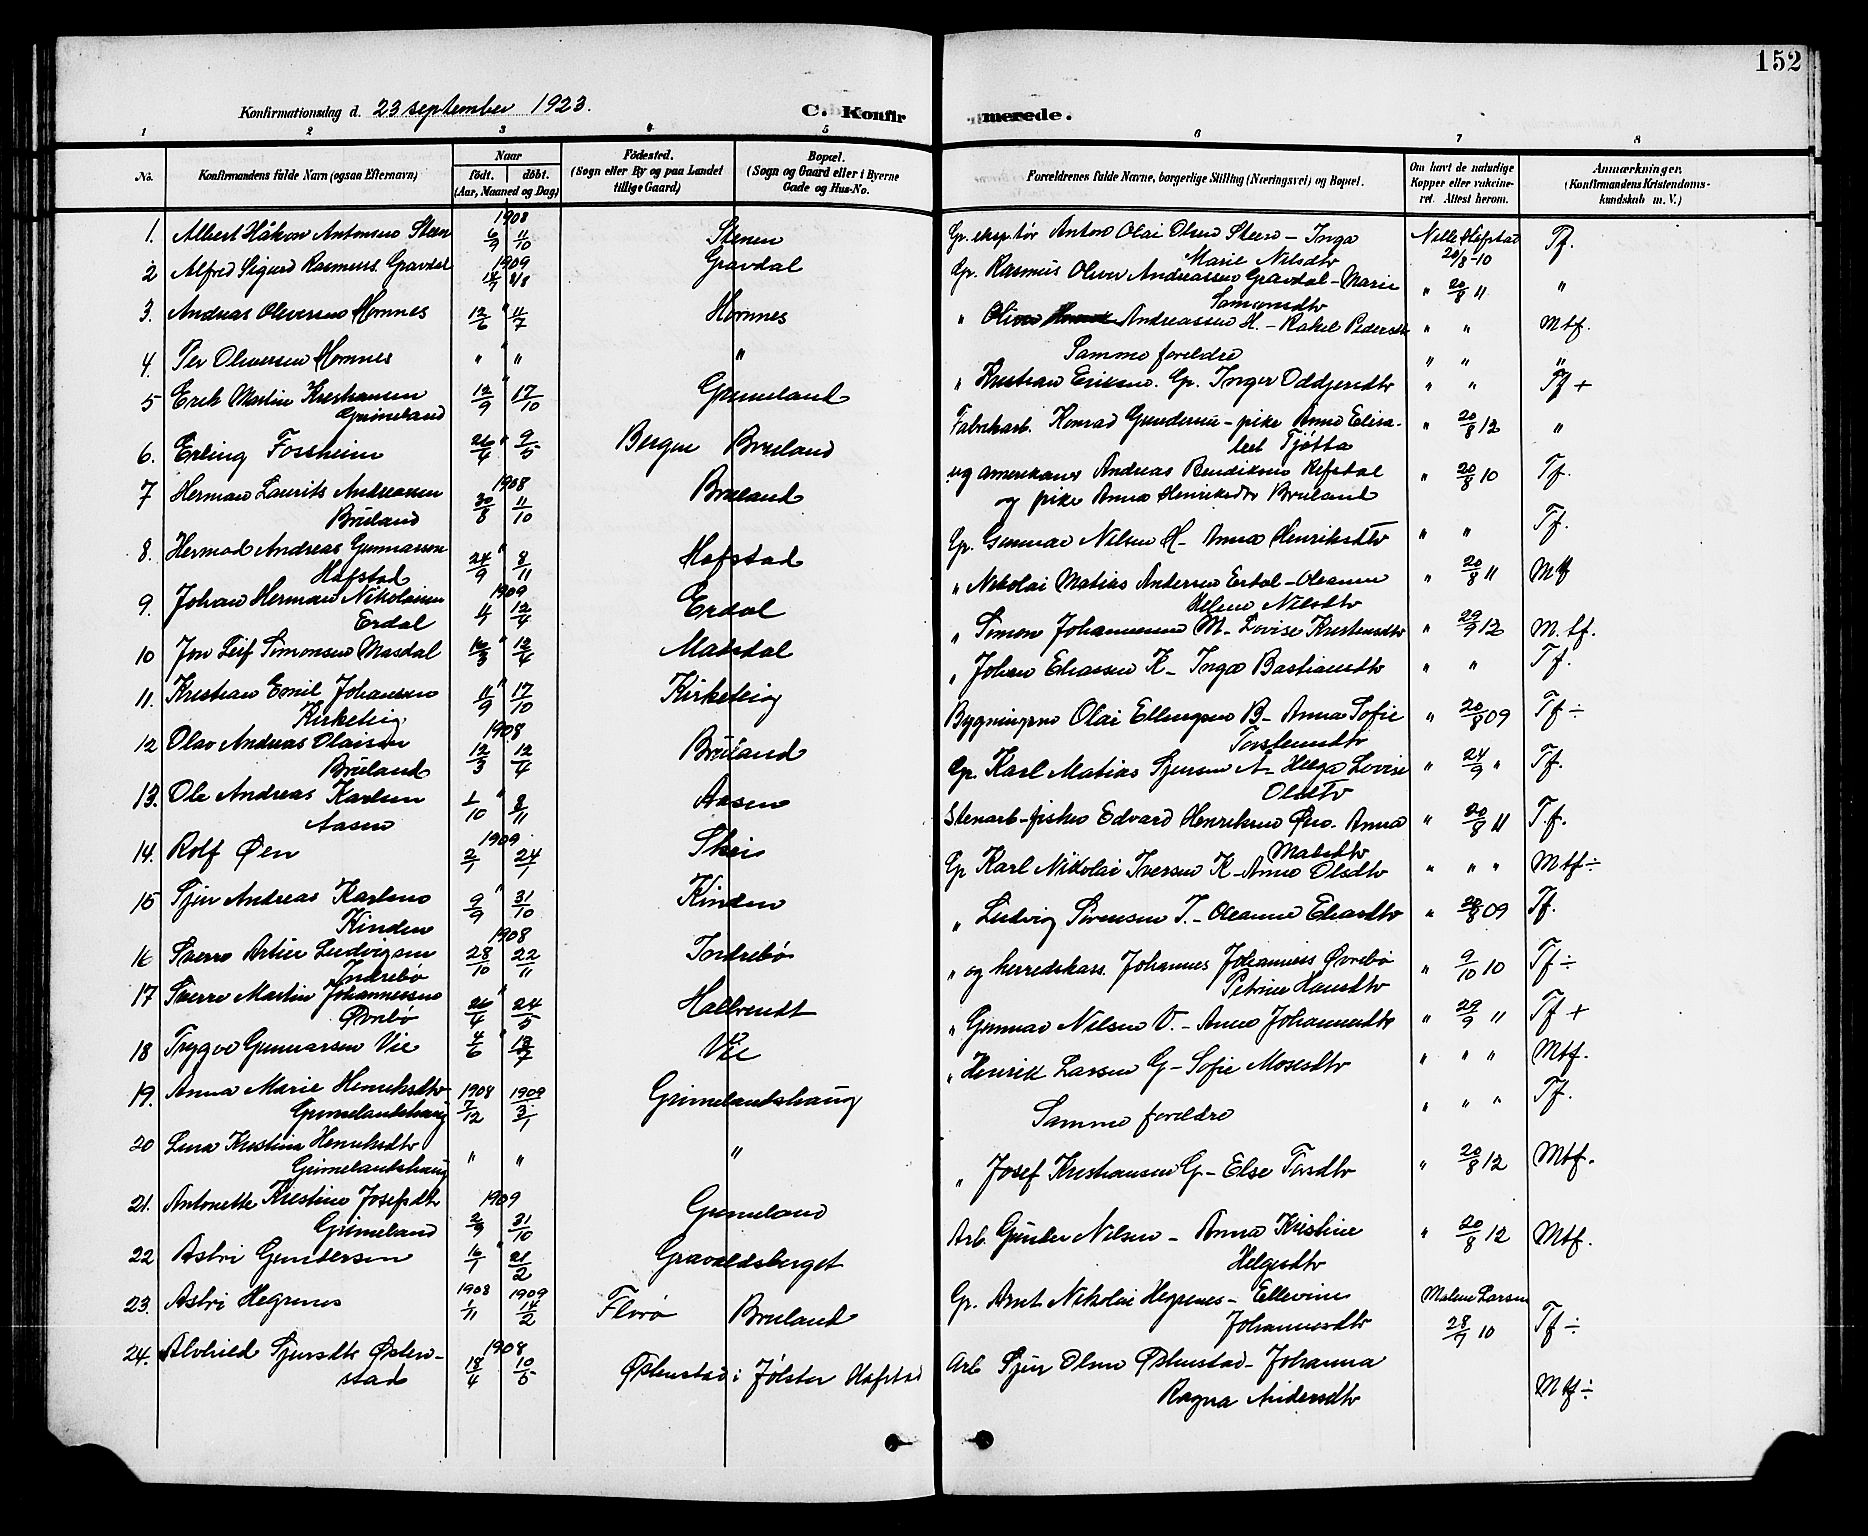 152
Konfirmationsdag d. 23 september 1923.
C. Konfirmerede.
1 2 3 4 5 6 7 8
No.
Konfirmandens fulde Navn (ogsaa Efternavn)
Naar
født. døbt.
(Aar, Maaned og Dag)
Fødested.
(Sogn eller By og paa Landet
tillige Gaard)
Bopæl.
(Sogn og Gaard eller i Byerne
Gade og Hus-No.
Forældrenes fulde Navne, borgerlige Stilling (Næringsvei) og Bopæl.
Om havt de naturlige
Kopper eller vakcine-
ret. Attest herom.
Anmærkninger.
(Konfirmandens Kristendoms-
kundskab m. V.)
1908
1. Albert Håkon Antonsen Steen 6/9 11/10 Stenen Gp. eksp.tør Anton Olai Olsen Steen - Inga Marie Nilsdtr Nille Hofstad 20/8-10 Tf.
1909
2 Alfred Sigurd Rasmuss. Gravdal 14/7 1/8 Gravdal Gp. Rasmus Oliver Andreassen Gravdal - Marie Samsonsdtr " 20/8 11 "
3. Andreas Oliversen Hornnes 12/6 " 11/7 Hornnes " Oliver Andreassen H. - Rakel Pedersdtr " " Mtf.
4. Per Oliversen Hornnes " " " " Samme foreldre " " "
5 Erik Martin Kristiansen Grimeland 12/9 " 17/10 Grimeland " Kristian Eriksen. Gr. Inger Oddgersdtr " " Tf +
6. Erling Fossheim 26/4 " 9/5 Bergen Bruland Fabrikarb. Konrad Gundersen - pike Anna Elisabet Tjøtta " 20/8 12 "
1908
7 Herman Laurits Andreassen Bruland 30/8 11/10 Bruland ug amerikaner Andreas Bendiksen Refsdal og pike Anna Henriksdtr Bruland " 20/8 10 Tf.
8. Hermod Andreas Gunnarsen Hofstad 24/9 " 8/11 Hofstad Gp. Gunnar Nilsen H - Anna Henriksdtr " " Tf.
1909
9. Johan Herman Nikolaisen Erdal 12/4 Erdal " Nikolai Matias Andersen Erdal - Oleanna Helene Nilsdtr " 20/8 11 Mtf
10 Jon Leif Simonsen Masdal 16/3 " 12/4 Masdal " Simon Johannessen M - Lovise Kristensdtr " 29/9 12 M.tf.
11. Kristian Emil Johansen Kirketeig 11/9 " 17/10 Kirketeig " Johan Eliassen K - Inga Bastiansdtr " " Tf.
1908
12 Olav Andreas Olaisen Bruland 12/3 12/4 Bruland Bygningssn Olai Ellingsen B - Anna Sofie Torstensdtr " 20/8 09 Tf ÷
13. Ole Andreas Karlsen Aasen 1/10 " 8/11 Aasen Gp. Karl Matias Sjursen A - Helga Lovise Olsdtr " 24/9 " Tf.
1909
14. Rolf Øen 2/1 24/1 Skei Stenarb - fisker Edvard Henriksen Øen. Anna Matsdtr " 20/8 11 T.f.
15 Sjur Andreas Karlsen Kinden 9/9 " 31/10 Kinden Gp Karl Nikolai Iversen K - Anna Olsdtr " " " Mtf ÷
1908
16 Sverre Artur Ludvigsen Indrebø 28/10 22/11 Indrebø " Ludvig Sørensen I. - Oleanna Eliasdtr " 20/8 09 Tf.
17 Sverre Martin Johannessen Øvrebø 26/4 " 24/5 Halbrendt " og herredskass. Johannes Johanness Øvrebø Petrine Hansdtr " 9/10 10 Tf ÷
18 Trygve Gunnarsen Vie 4/6 " Vie " Gunnar Nilsen V. - Anna Johannesdtr " 29/9 11 Tf +
19. Anna Marie Henriksdtr Grimelandshaug 1908 7/12 1909 3/1 Grimelandshaug " Henrik Larsen G - Sofie Mosesdtr " " " Mtf.
20 Lina Kristina Henriksdtr Grimelandshaug " " " Samme foreldre " " " Tf.
1909
21. Antonette Kristine Josefsdtr Grimeland 2/9 31/10 Grimeland " Josef Kristiansen G - Else Torsdtr " 20/8 12 Mtf.
22 Astri Gundersen 16/1 " 21/2 Gravdalsberget Arb Gunder Nilsen - Anna Kristine Helgesdtr " 20/8 12 Mtf.
23. Astri Hegrenes 1908 1/11 1909 14/2 Florø Bruland Gp. Arnt Nikolai Hegrenes - Ellevine Johannesdtr Malene Larsen 28/7 10 Tf ÷
1908
24. Alvhild Sjursdtr Østenstad 18/4 10/5 Østenstad i Jølster Hofstad Arb Sjur Olsen Østenstad - Johanna Ragna Andersdtr Mtf ÷